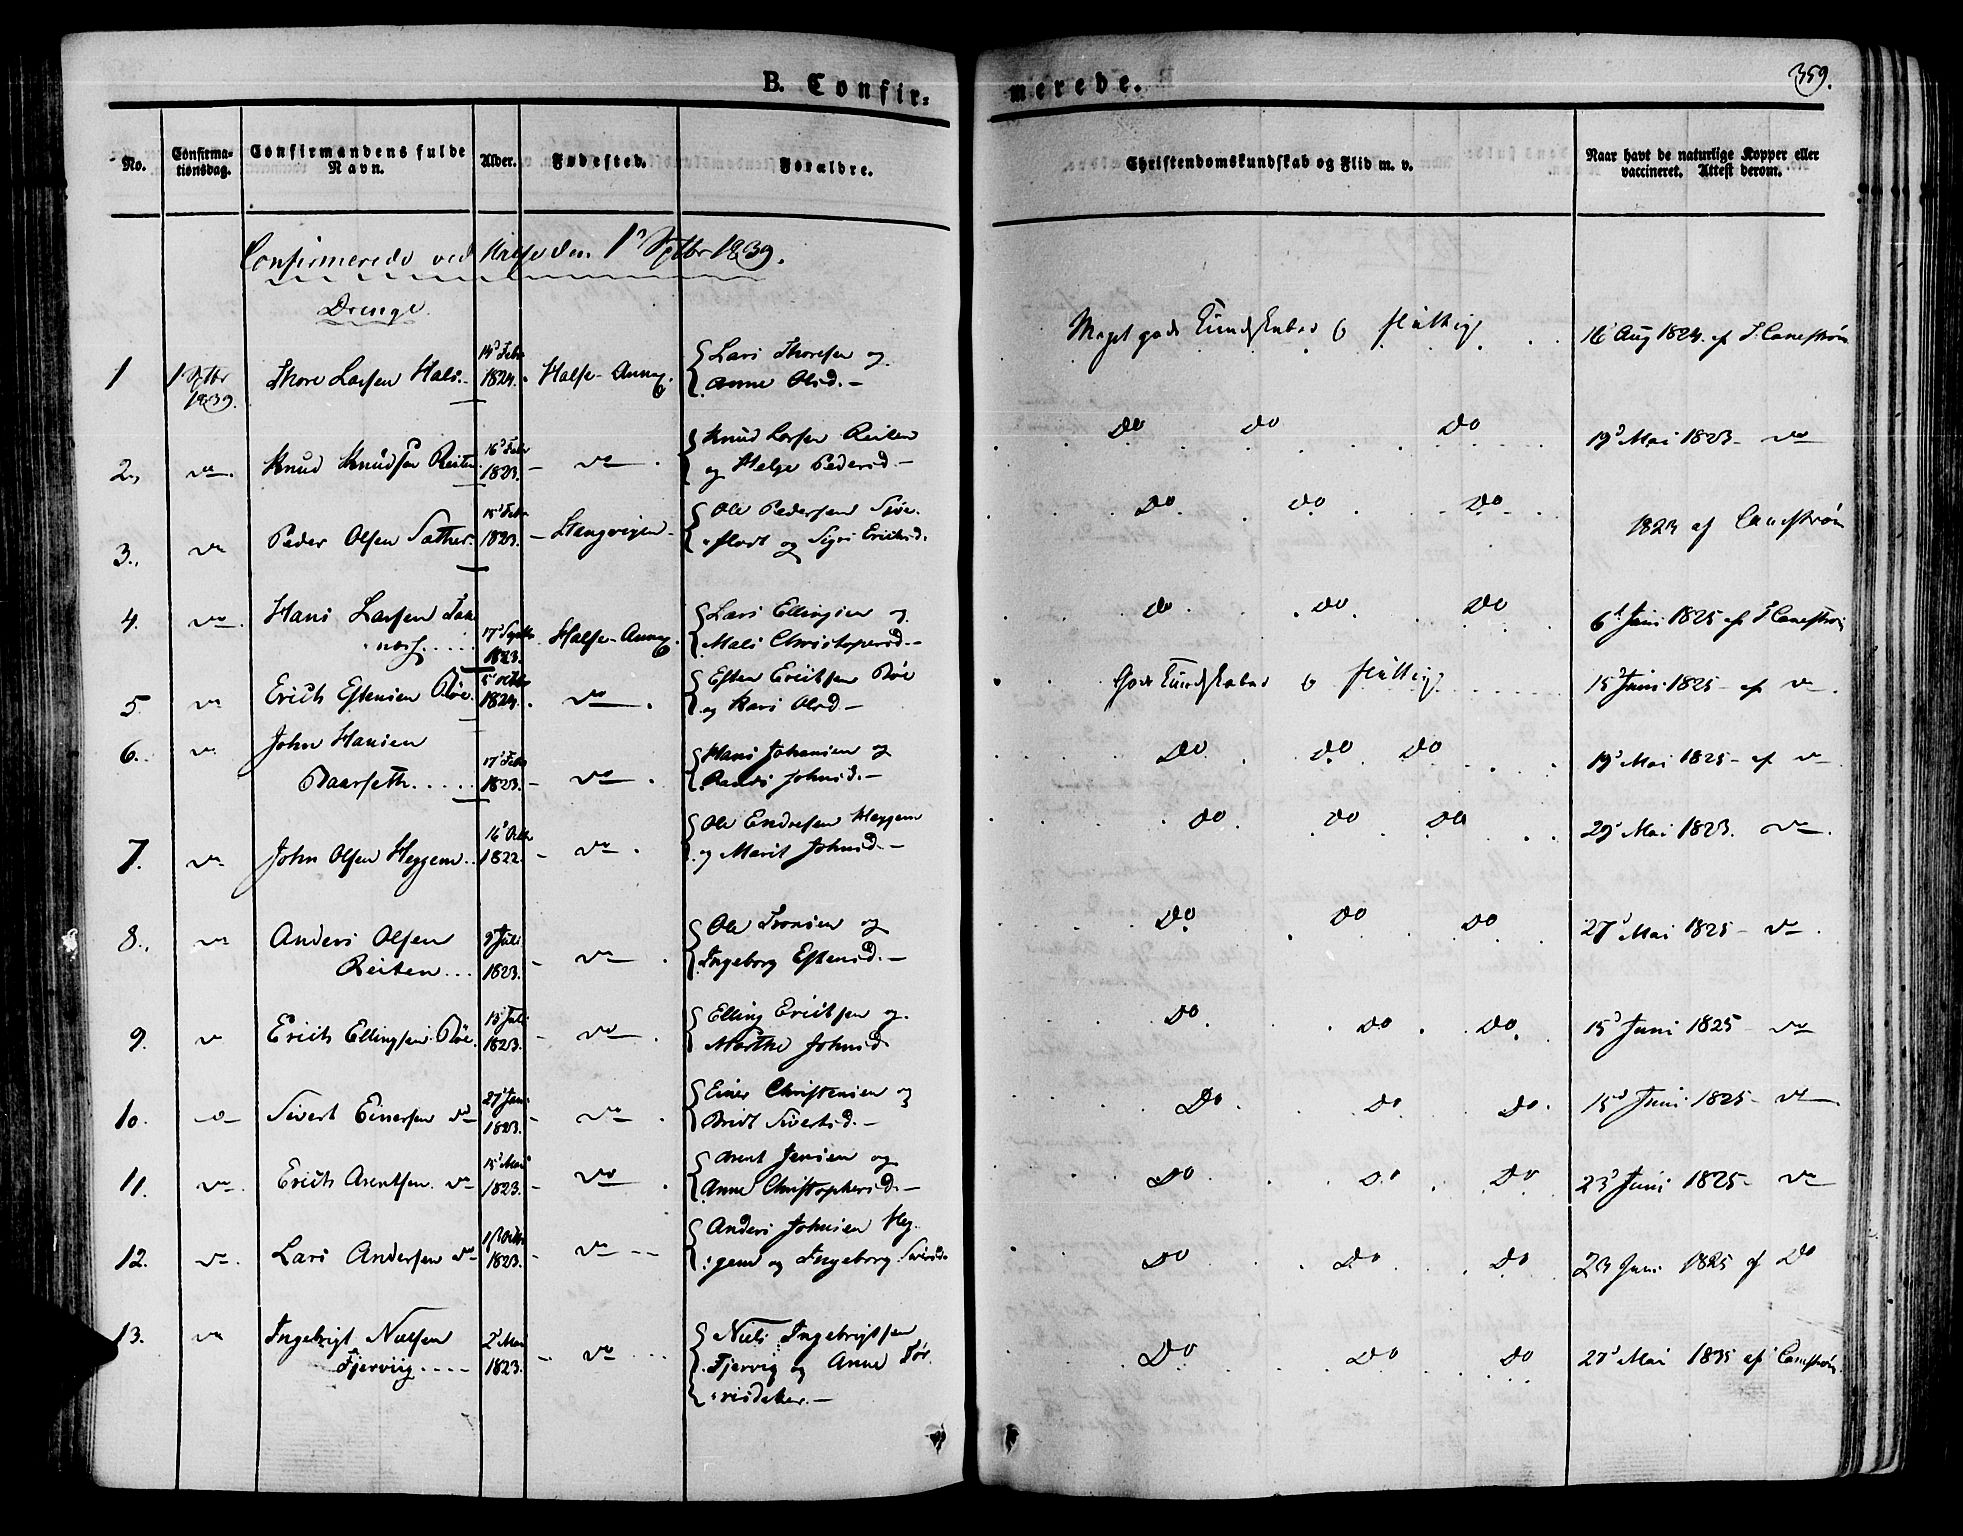 B. Confir=
merede.
359.
No.
Confirma-
tionsdag.
Confirmandens fulde
Navn.
Alder.
Fødested.
Forældre.
Christendomskundskab og Flid m. v.
Naar havt de naturlige Kopper eller
vaccineret. Attest derom.
Confirmerede ved Halse den 1ˢ Sptbr 1839.
Drenge.
1 1 Sptbr 1839. Thore Larsen Hals. 14ᵈ Febr 1824. Halse-Annex.
{Lars Thoresen og
Anne Olsd.-
Meget gode Kundskaber og flittig
16 Aug 1824. af Canestrøm
2. do. Knud Knudsen Reiten 16ᵈ Febr 1823. do.
{Knud Larsen Reiten
og Helge Pedersd.-
Do Do Do
19ᵈ Mai 1823 - do
3. do Peder Olsen Sæther. 15ᵈ Febr 1823. - Stangvigen -
{Ole Pedersen
og Sigri Erichsd.
Do Do Do
1823 af Canestrøm
4. do. Hans Larsen
næs. 17ᵈ Septbr 1823. Halse-Annex.
{Lars Ellingsen og
Mali Christopersd.-
do. do. Do
6ᵈ Juni 1825 af Canestrøm
5. do Erich Estensen Bøe. 5 Octbr 1824. do.
{Esten Erichsen Bøe
og Kari Olsd-
Gode Kundskaber og flittig
15ᵈ Juni 1825 - af do.
6. do John Hansen
Baarseth. 17ᵈ Febr 1823. - do.
{Hans Johansen og
Randi Johnsd.-
Do Do Do
19ᵈ Mai 1825 - af do
7. do John Olsen Heggem. 16ᵈ Octbr 1822. - do.
{Ole Endresen Heggem
og Marit Johnsd.-
Do Do Do
29ᵈ Mai 1823. do.
8. do Anders Olsen
Reiten. 9ᵈ Juli 1823. - do.
{Ole Tronsen og
Ingeborg Estensd.-
Do Do Do
27ᵈ Mai 1825 - do.
9. do Erich Ellingsen Bøe. 13ᵈ Juli 1823. - do.
{Elling Erichsen og
Marthe Johnsd.
Do. Do. Do.
15ᵈ Juni 1825 - do
10. do Sivert Einersen do 27ᵈ 1823. - do.
{Einer Christensen og
Bridt Sivertsd.-
Do. Do. Do.
15ᵈ Juni 1825 - do
11. do. Erich Arentsen do 15ᵈ Mai 1823. - do.
{Arent Jensen og
Anne Christophersd.-
Do Do Do
23ᵈ Juni 1825 - do
12. do. Lars Andersen do Octbr 1823. - do --
{Anders Johnsen Heg-
:gem og Ingeborg Sivertsd.
Do Do Do
23 Juni 1825 af Do
13. do Ingebrigt Nielsen
Fjervig 2ᵈ Mai 1823. - do
{Niels Ingebrigtsen
Fjervig og Anne Tør-
:risdatter.-
Do Do Do
27ᵈ Mai 1835 af Canestrøm